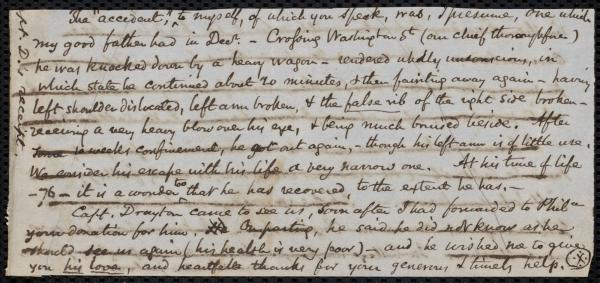 The "accident," to myself, of which you speak, was, I presume, one which
my good father had in Decr. – Crossing Washington St (our chief thoroughfare)
he was knocked down by a heavy wagon – rendered wholly unconscious, in
which state he continued about 20 minutes, & then fainting away again – having
left shoulder dislocated, left arm broken, & the false rib of the right side broken –
receiving a very heavy blow over his eye, & being much bruised beside. After
weeks confinement, he got out again, – though his left arm is of little use.
We consider his escape with his life a very narrow one. At his time of life
– 76 – it is a wonder too that he has recovered, to the extent he has. –
Capt. Drayton came to see us, soon after I had forwarded to Phila
your donation for him. On parting, he said he did not know as he
should see us again (his health is very poor) – and he wished me to give
you his love, and heartfelt thanks for your generous & timely help.
receipt.